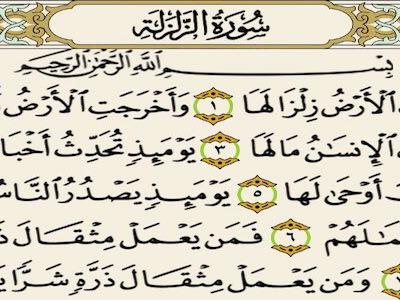 سُورَةُ الزَّلْزَلَة
بِسْمِ ٱللَّهِ ٱلرَّحْمَٰنِ ٱلرَّحِيمِ
ٱلْأَرْضُ زِلْزَالَهَا ١ وَأَخْرَجَتِ ٱلْأَرْضُ
ٱلْإِنسَٰنُ مَا لَهَا ٣ يَوْمَئِذٍ تُحَدِّثُ أَخْبَا
أَوْحَىٰ لَهَا ٥ يَوْمَئِذٍ يَصْدُرُ ٱلنَّاسُ
مَٰلَهُمْ ٦ فَمَن يَعْمَلْ مِثْقَالَ ذَ
وَمَن يَعْمَلْ مِثْقَالَ ذَرَّةٍ شَرًّا يَ